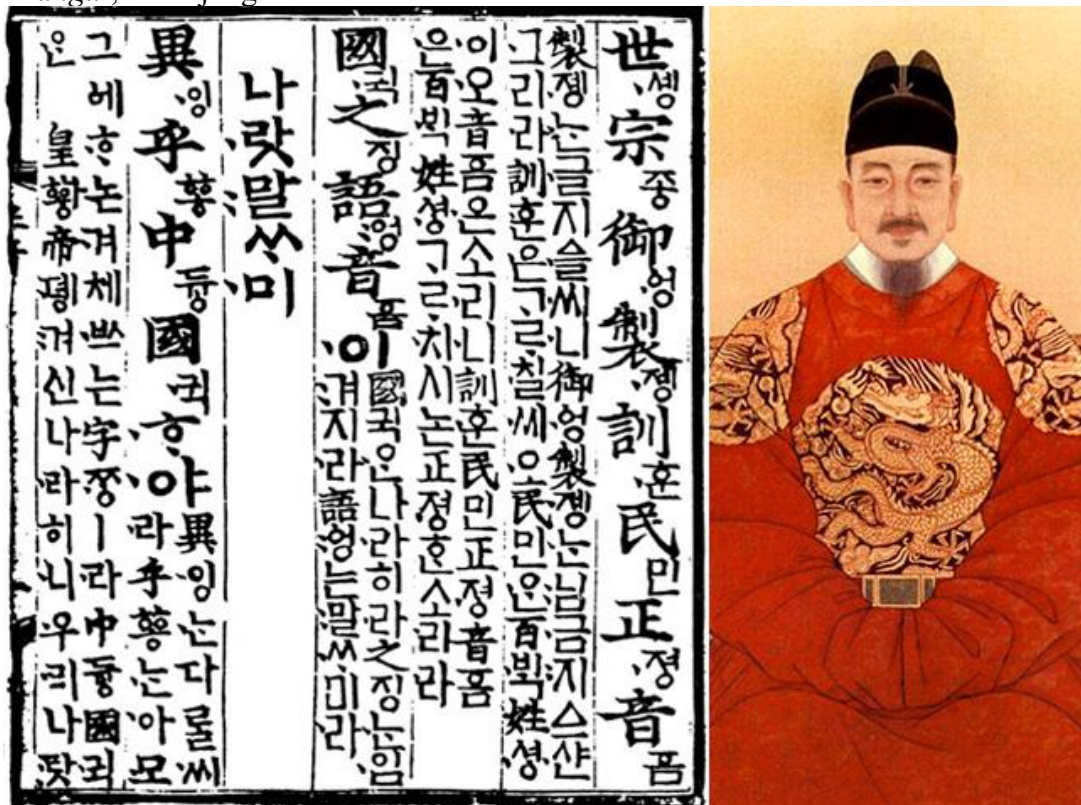 世솅宗종御ᅌᅥᆼ製졩訓훈民민正졍音ᅙᅳᆷ
製졩ᄂᆞᆫ글지ᅀᅳᆯ씨니御ᅌᅥᆼ製졩ᄂᆞᆫ님금지ᅀᅳ샨
그리라訓훈은ᄀᆞᄅᆞ칠씨오民민ᄋᆞᆫ百ᄇᆡᆨ姓셩
이오音ᅙᅳᆷ은소리니訓훈民민正졍音ᅙᅳᆷ
은百ᄇᆡᆨ姓셩ᄀᆞᄅᆞ치시논正졍ᄒᆞᆫ소리라
國귁之징語ᅌᅥᆼ音ᅙᅳᆷ이國귁ᄋᆞᆫ나라히라之징ᄂᆞᆫ입
겨지라語ᅌᅥᆼ는말ᄊᆞ미라
나랏말ᄊᆞ미
異잉乎ᅘᅩᆼ中듀ᇰ國귁ᄒᆞ야異잉ᄂᆞᆫ다ᄅᆞᆯ씨
라乎ᅘᅩᆼᄂᆞᆫ아모
그ᅌᅦᄒᆞ논겨체ᄡᅳ는字ᄍᆞᆼㅣ라中듀ᇰ國귁
ᄋᆞᆫ皇ᅘᅪᆼ帝뎽겨신나라히니우리나랏